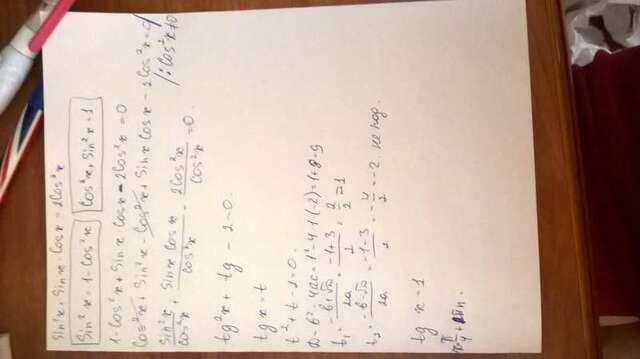 Sin²x + Sin x · Cos x = 2Cos²x
Sin²x = 1 - Cos²x  Cos²x + Sin²x = 1
1 - Cos²x + Sin x Cos x - 2Cos²x = 0
Cos²x + Sin²x - Cos²x + Sin x Cos x - 2Cos²x = 0 / : Cos²x ≠ 0
Sin²x/Cos²x + Sin x Cos x/Cos²x - 2Cos²x/Cos²x = 0.
tg²x + tg - 2 = 0.
tg x = t
t² + t - 2 = 0.
D = b² - 4ac = 1² - 4·1·(-2) = 1+8 = 9
t₁ = -b+√D/2a = -1+3/2 = 2/2 = 1
t₂ = -b-√D/2a = -1-3/2 = -4/2 = -2. не под.
tg x = 1
π/4 + πn.